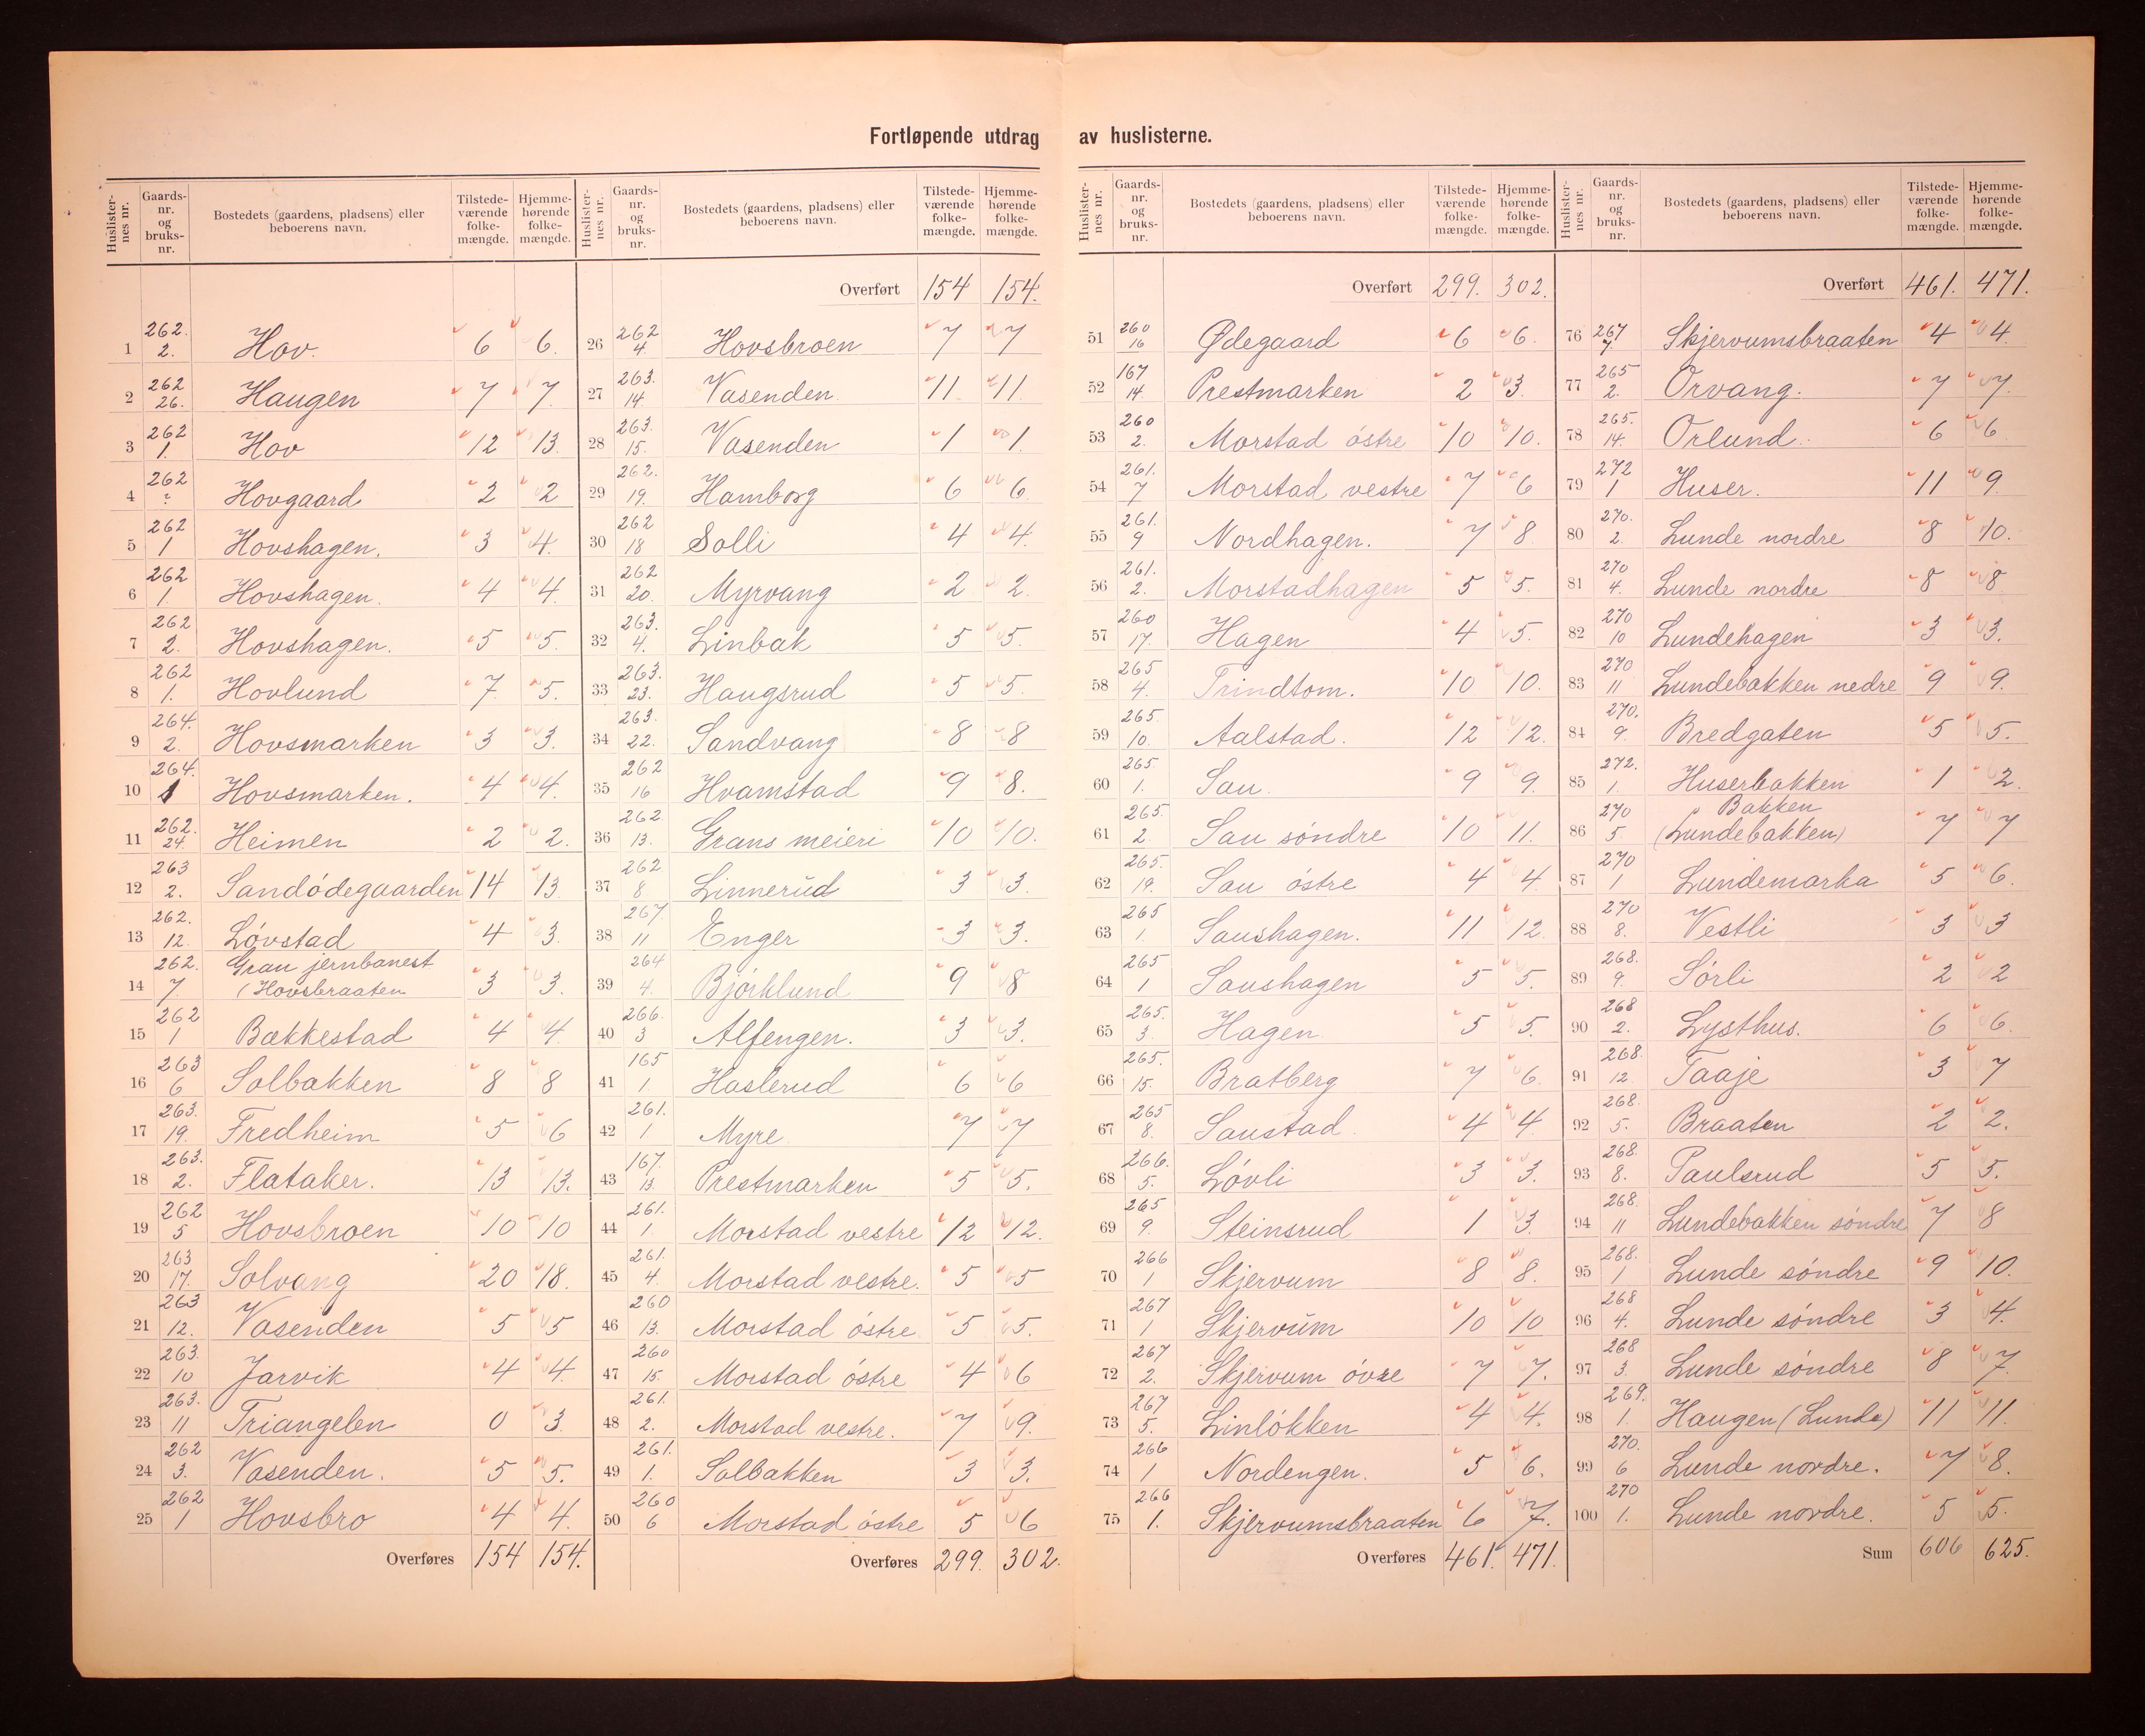 Fortløpende utdrag av huslisterne.
Huslister-nes nr. Gaards-nr. og bruks-nr. Bostedets (gaardens, pladsens) eller beboerens navn. Tilstede-værende folke-mængde. Hjemme-hørende folke-mængde.
1 262. 2. Hov. 6 6.
2 262 26. Haugen 7 7.
3 262 1. Hov 12 13.
4 262 ? Hovgaard 2 2
5 262 1 Hovshagen. 3 4.
6 262 1. Hovshagen. 4 4.
7 262 2. Hovshagen. 5 5.
8 262 1. Hovlund 7. 5.
9 264. 2. Hovsmarken 3 3.
10 264. 1 Hovsmarken. 4 4.
11 262. 24. Heimen 2 2.
12 263 2. Sandödegaarden 14 13.
13 262. 12. Lövstad 4 3.
14 262. 7. Gran jernbanest. (Hovsbraaten 3 3.
15 262 1 Bækkestad 4 4.
16 263 6 Solbakken 8 8
17 263. 19. Fredheim 5 6
18 263. 2. Flataker. 13 13.
19 262 5 Hovsbroen 10 10
20 263 17. Solvang 20 18.
21 263 12. Vasenden 5 5
22 263. 10 Jarvik 4 4.
23 263. 11 Triangelen 0 3.
24 262 3. Vasenden. 5 5.
25 262 1 Hovsbro 4 4.
Overføres 154 154.
Huslister-nes nr. Gaards-nr. og bruks-nr. Bostedets (gaardens, pladsens) eller beboerens navn. Tilstede-værende folke-mængde. Hjemme-hørende folke-mængde.
Overført 154 154.
26 262 4. Hovsbroen 7 7
27 263. 14 Vasenden 11 11
28 263. 15. Vasenden 1 1.
29 262. 19. Hamborg 6 6
30 262 18 Solli 4 4.
31 262 20. Myrvang 2 2.
32 263. 4. Linbak 5 5.
33 263. 23. Haugsrud 5 5.
34 263. 22. Sandvang 8 8
35 262 16 Hvamstad 9 8.
36 262. 13. Grans meieri 10 10.
37 262 8 Linnerud 3 3.
38 267. 11 Enger 3 3.
39 264 4. Björklund 9 8
40 266. 3 Alfengen. 3 3.
41 165 1. Haslerud 6 6
42 261. 1 Myre 7 7
43 167. 13. Prestmarken 5 5.
44 261. 1. Morstad vestre 12 12.
45 261. 4. Morstad vestre. 5 5
46 260 13. Morstad östre 5 5.
47 260 15. Morstad östre 4 6
48 261. 2. Morstad vestre. 7 9.
49 261. 1. Solbakken 3 3.
50 260 6 Morstad östre 5 6
Overføres 299. 302.
Huslister-nes nr. Gaards-nr. og bruks-nr. Bostedets (gaardens, pladsens) eller beboerens navn. Tilstede-værende folke-mængde. Hjemme-hørende folke-mængde.
Overført 299. 302.
51 260 16 Ødegaard 6 6.
52 167 14. Prestmarken 2 3.
53 260 2. Morstad östre 10 10.
54 261. 7 Morstad vestre 7 6
55 261. 9 Nordhagen. 7 8.
56 261. 2. Morstadhagen 5 5.
57 260 17. Hagen 4 5.
58 265 4. Trindtom. 10 10.
59 265. 10. Aalstad. 12 12.
60 265. 1. Sau. 9 9.
61 265. 2. Sau söndre 10 11.
62 265. 19. Sau östre 4 4.
63 265 1. Saushagen. 11 12.
64 265 1 Saushagen 5 5.
65 265. 3. Hagen 5 5.
66 265. 15. Bratberg 7 6.
67 265 8. Saustad 4 4
68 266. 5. Lövli 3 3.
69 265 9. Steinsrud 1 3.
70 266 1 Skjervum 8 8.
71 267 1 Skjervum 10 10
72 267 2. Skjervum övre 7 7.
73 267 5. Linlökken 4 4.
74 266 1 Nordengen. 5 6.
75 266 1. Skjervumsbraaten 6 7.
Overføres 461. 471.
Huslister-nes nr. Gaards-nr. og bruks-nr. Bostedets (gaardens, pladsens) eller beboerens navn. Tilstede-værende folke-mængde. Hjemme-hørende folke-mængde.
Overført 461. 471.
76 267 7. Skjervumsbraaten 4 4.
77 265 2. Orvang. 7 7.
78 265. 14. Orlund. 6 6.
79 272 1 Huser. 11 9.
80 270. 2. Lunde nordre 8 10.
81 270 4. Lunde nordre 8 8.
82 270 10 Lundehagen 3 3.
83 270 11 Lundebakken nedre 9 9.
84 270. 9. Bredgaten 5 5.
85 272. 1. Huserbakken 1 2.
86 270 5 Bakken (Lundebakken) 7 7
87 270 1 Lundemarka 5 6.
88 270 8. Vestli 3 3
89 268. 9. Sörli 2 2
90 268 2. Lysthus. 6 6.
91 268. 12. Taaje 3 7
92 268. 5. Braaten 2 2.
93 268. 8. Paulsrud 5 5.
94 268. 11 Lundebakken söndre 7 8
95 268. 1 Lunde söndre 9 10.
96 268 4. Lunde söndre 3 4.
97 268 3. Lunde söndre 8 7.
98 269. 1. Haugen (Lunde) 11 11.
99 270. 6 Lunde nordre. 7 8.
100 270 1. Lunde nordre. 5 5.
Sum 606 625.